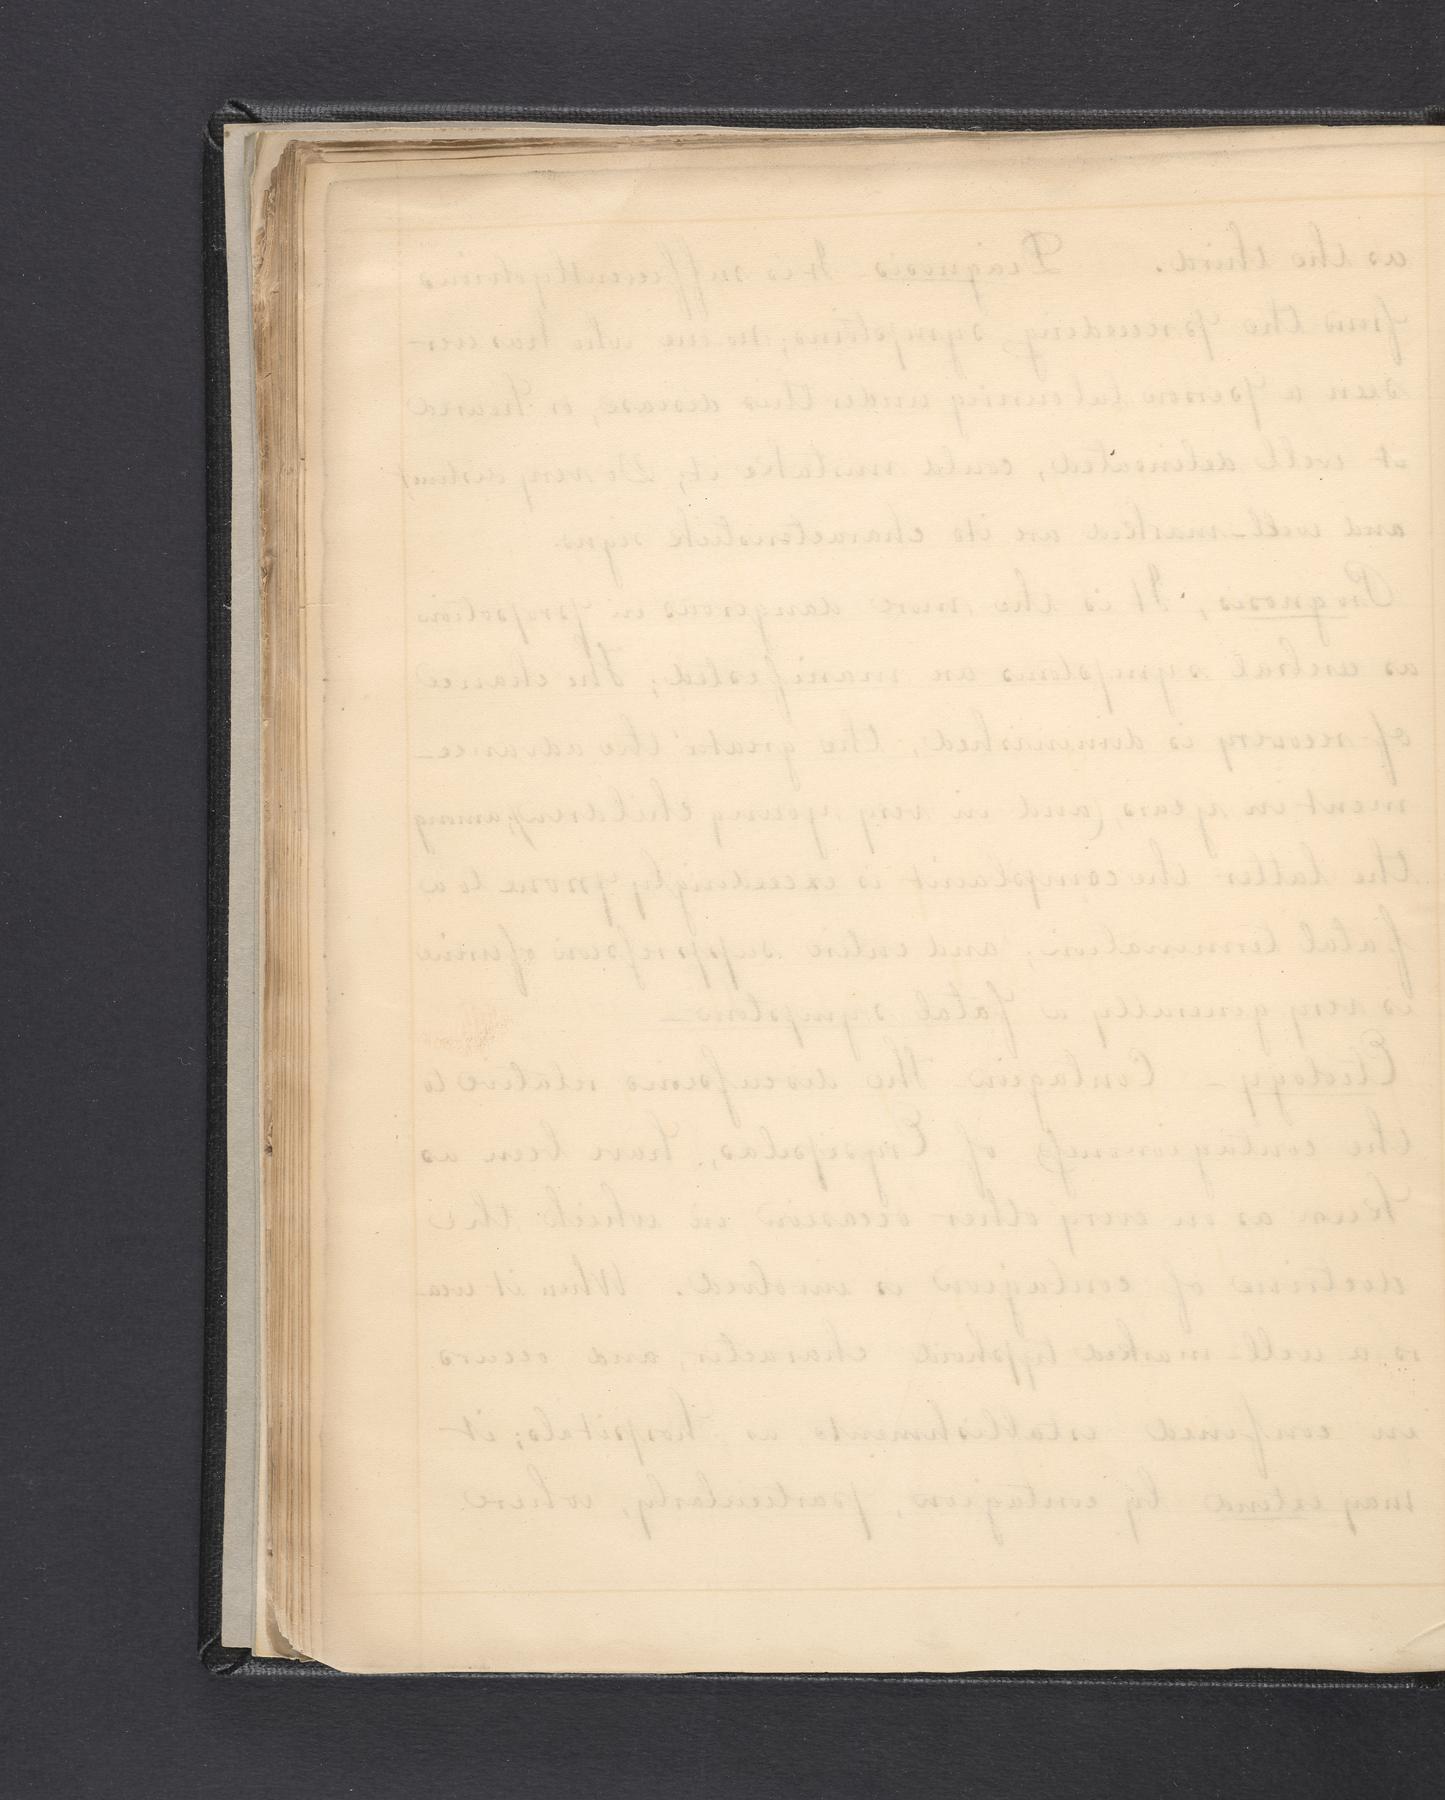 as the third. Diagnosis It is sufficiently obvious
from the preceeding symptoms; no one who has ever
seen a person labouring under this disease, or heard
it well delineated, could mistake it; So very distinct
and well-marked are its characteristick signs.
Prognosis, It is the more dangerous in proportion
as central symptoms are manifested; the chance
of recovery is diminished, the greater the advance-
ment in years, (and in very young children) among
the latter the complaint is exceedingly prone to a
fatal termination; and entire suppression of urine
is very generally a fatal symptom-
Etiology - Contagion The discussions relative to
the contagiousness of Erysipelas, have been as
keen as on every other occasion in which the
doctrine of contagion is involved. When it wea-
rs a well-marked typhoid character, and occurs
in confined establishments as hospitals; it
may extend by contagion, particularly, where